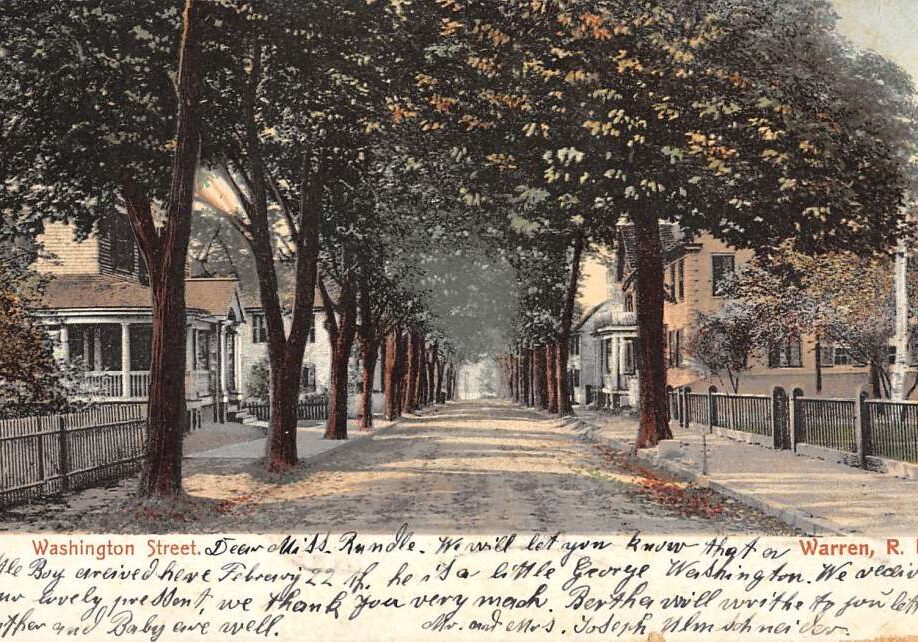 Washington Street. Dear Miss. Rundle. We will let you know that a Warren, R. I
tle Boy areived here Februery 22 th. he is a little George Washington. We receiv
our lovely pressent, we thank you very mach. Bertha will writhe to you lat
other and Baby are well. Mr. and Mrs. Joseph Ulmschneider.